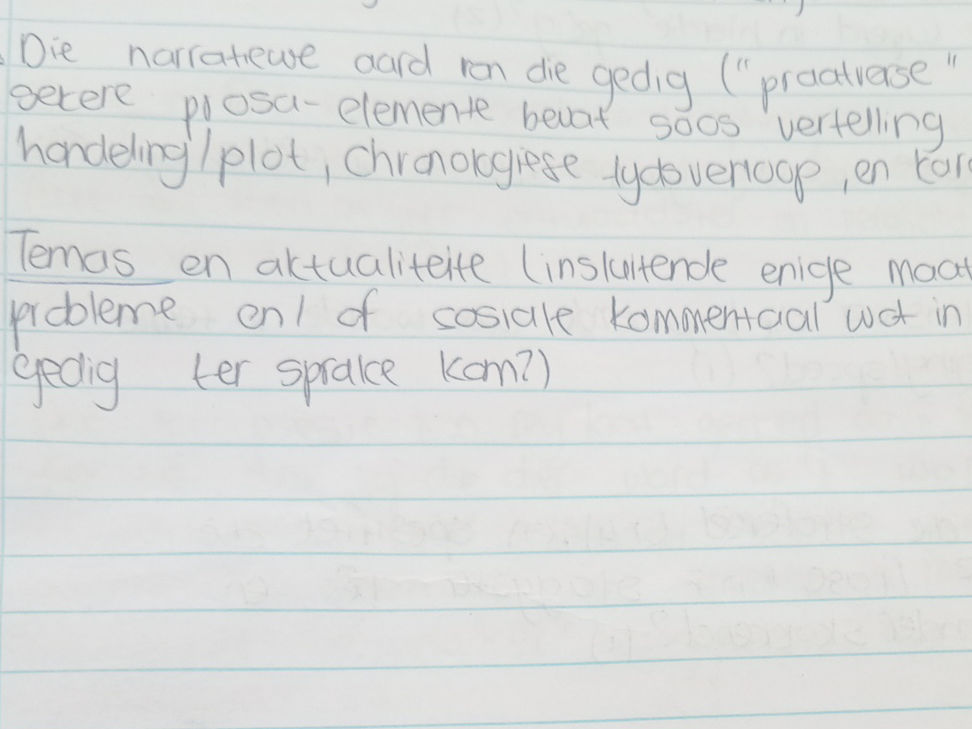 Die narratiewe aard van die gedig ("praatverse"
sekere prosa-elemente bevat soos vertelling
handeling/plot, chronologiese tydsverloop, en kar
Temas en aktualiteite (insluitende enige maat
probleme en/of sosiale kommentaal wat in
gedig ter sprake kom?)